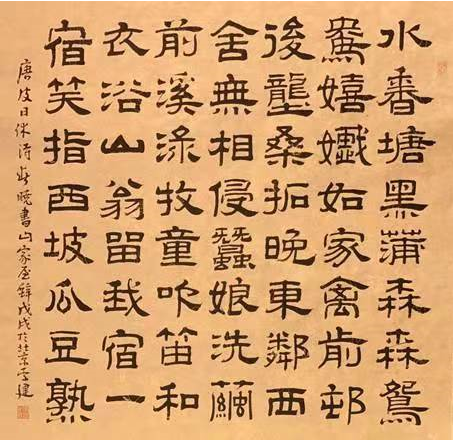 水香塘黑蒲森森鴛
鴦嬉孅如家禽前邨
後壟桑柘晚東鄰西
舍無相侵蠶娘洗繭
前溪淥牧童吹笛和
衣浴山翁留我宿一
宿笑指西坡瓜豆熟
唐皮日休詩春曉書山家屋壁戊戌於北京李建